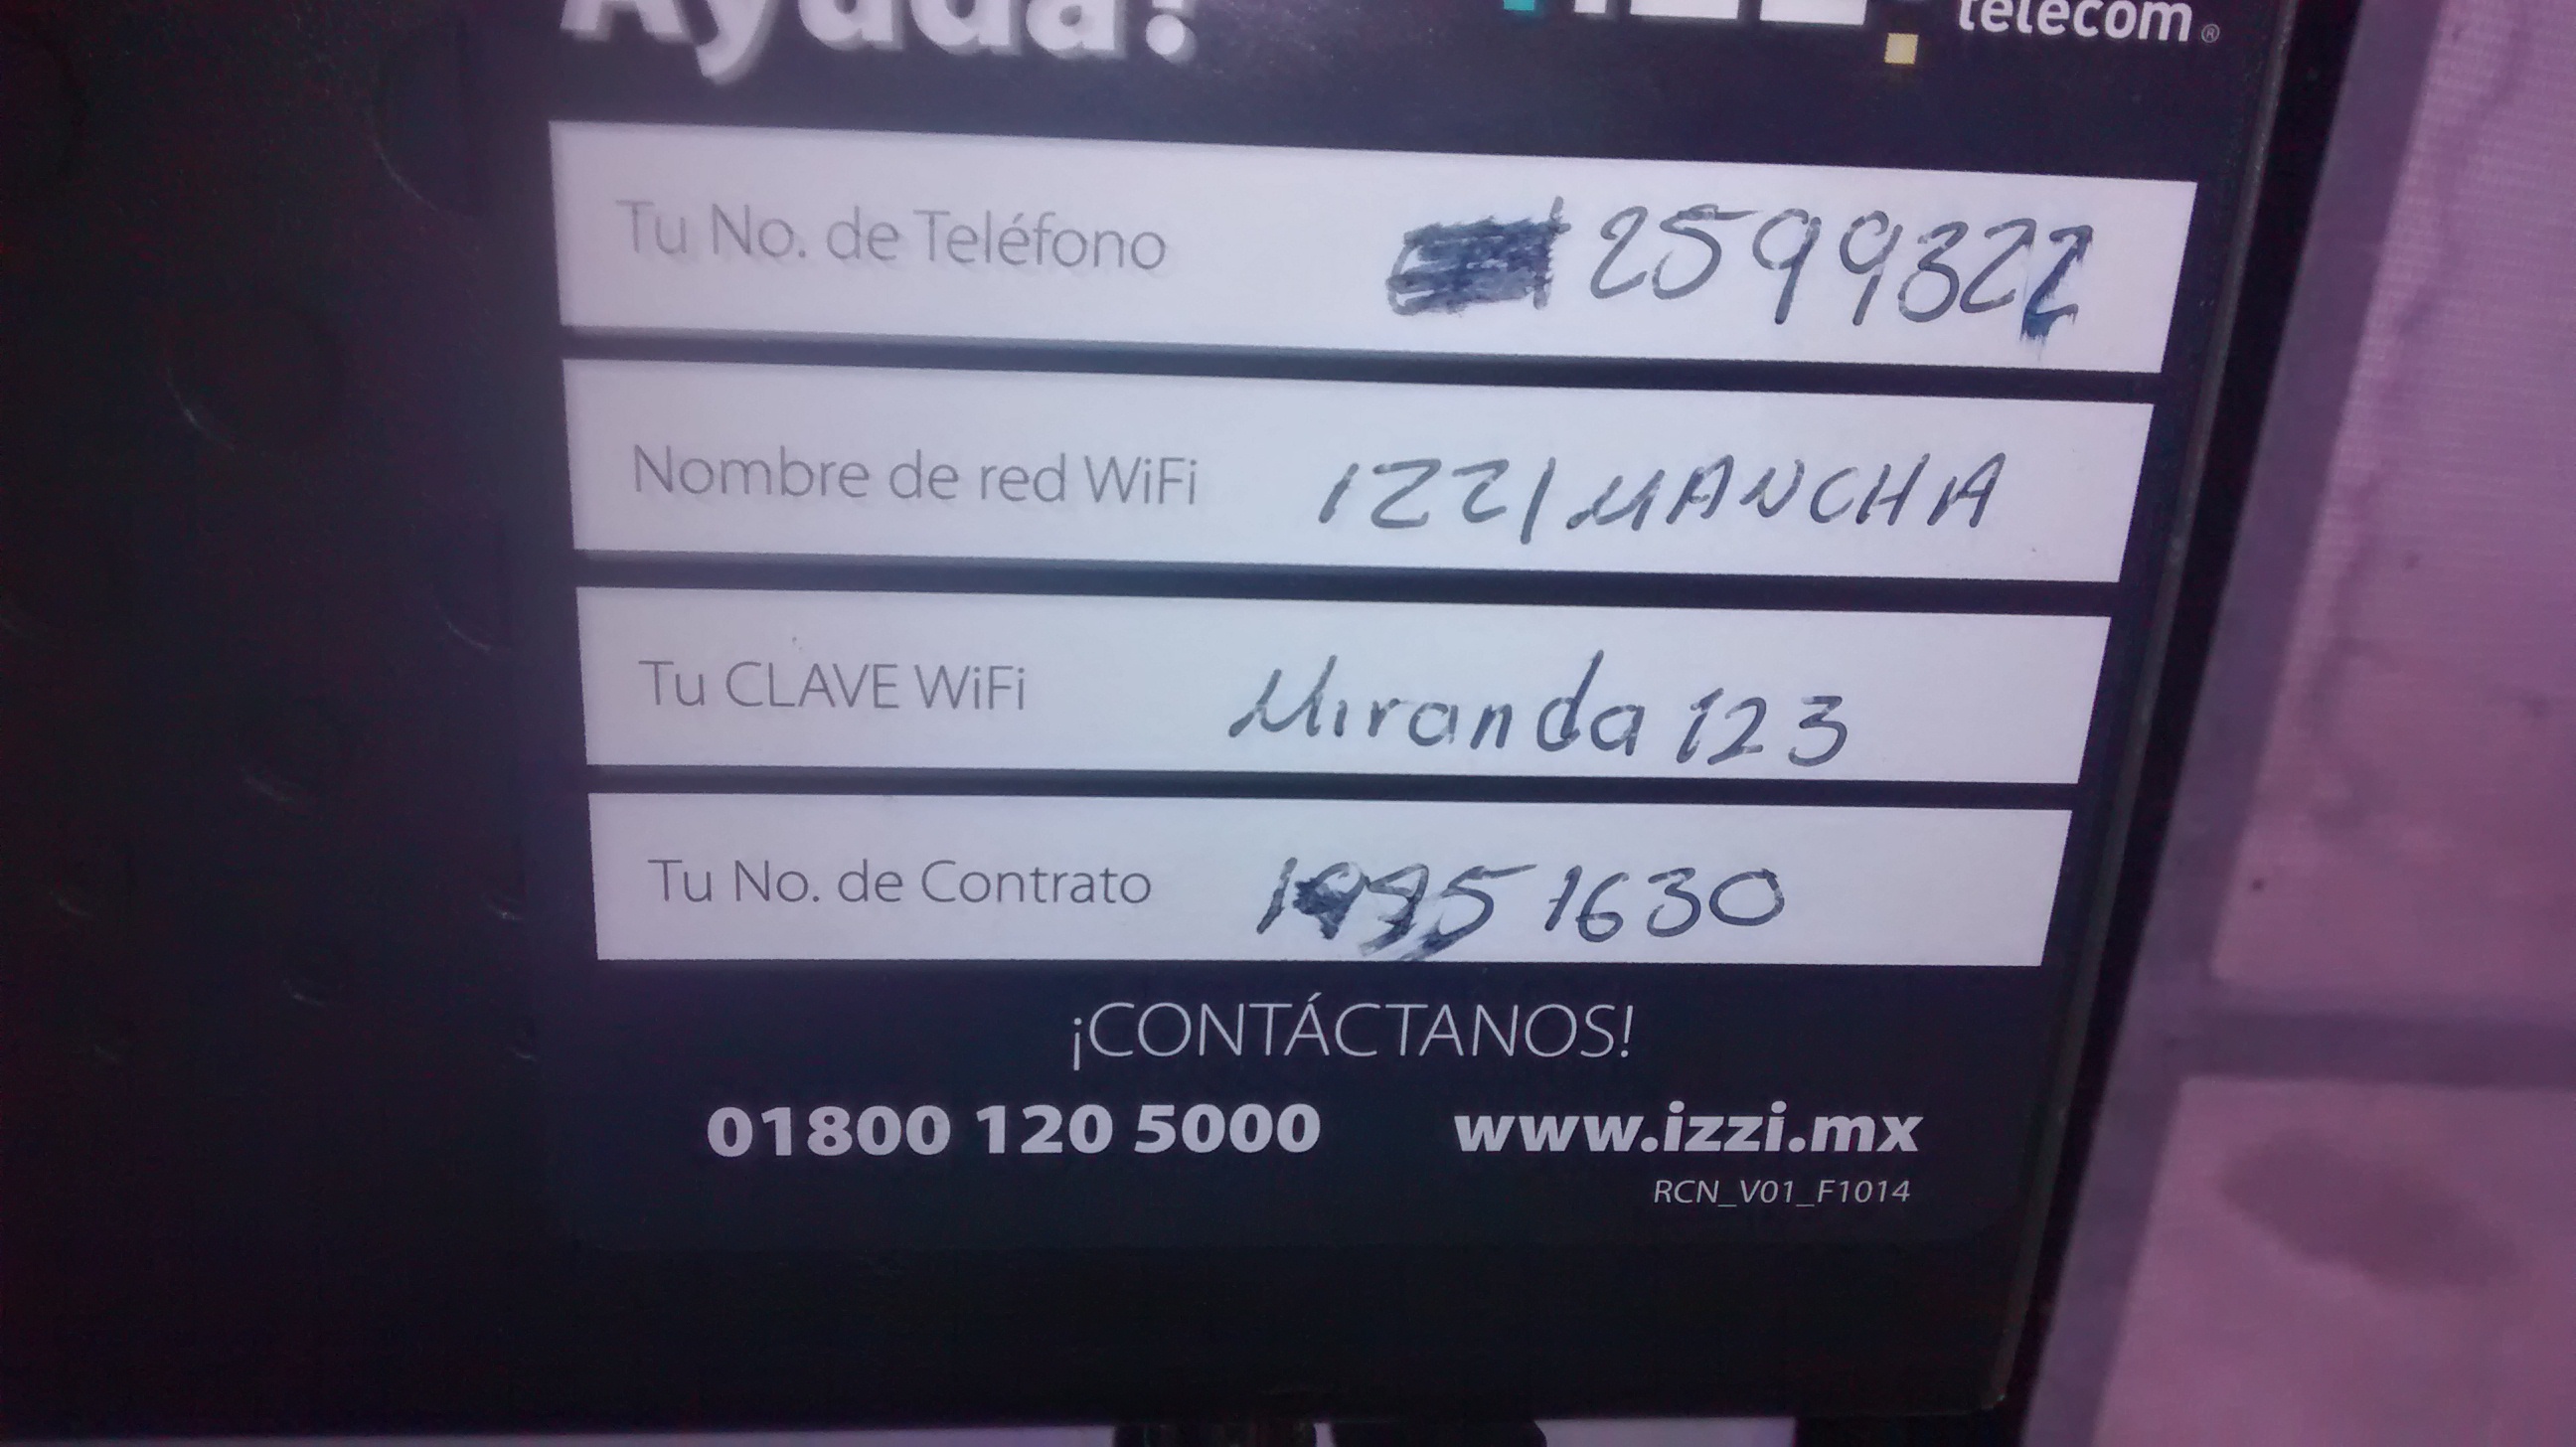 Ayuda!
izzi telecom®
Tu No. de Teléfono 2599322
Nombre de red WiFi IZZIMANCHA
Tu CLAVE WiFi Miranda 123
Tu No. de Contrato
¡CONTÁCTANOS!
01800 120 5000 www.izzi.mx
RCN_V01_F1014